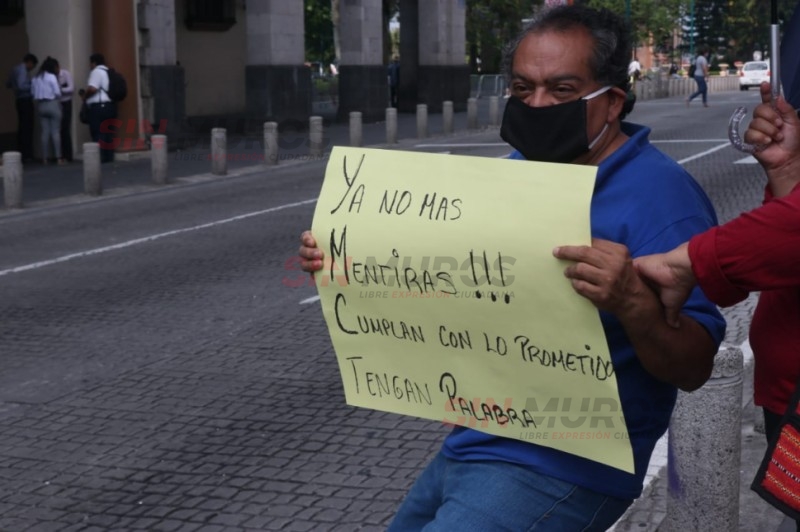 YA NO MAS
MENTIRAS !!!
CUMPLAN CON LO PROMETIDO
TENGAN PALABRA
SIN MUROS
LIBRE EXPRESIÓN CIUDADANA
SIN MUROS
LIBRE EXPRESIÓN CIUDADANA